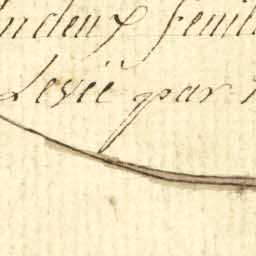 Indeux feuill
Levée par